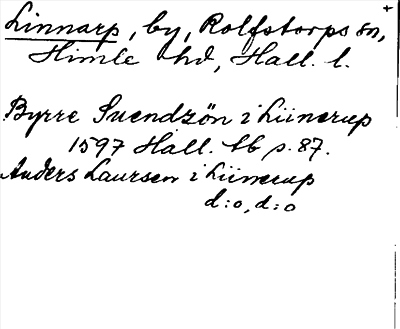 Linnarp, by, Rolfstorps sn,
Himle hd, Hall. l.
Byrre Suendzön i Liinerup
1597 Hall. tb p. 87.
Anders Laursen i Liinerup
d:o, d:o